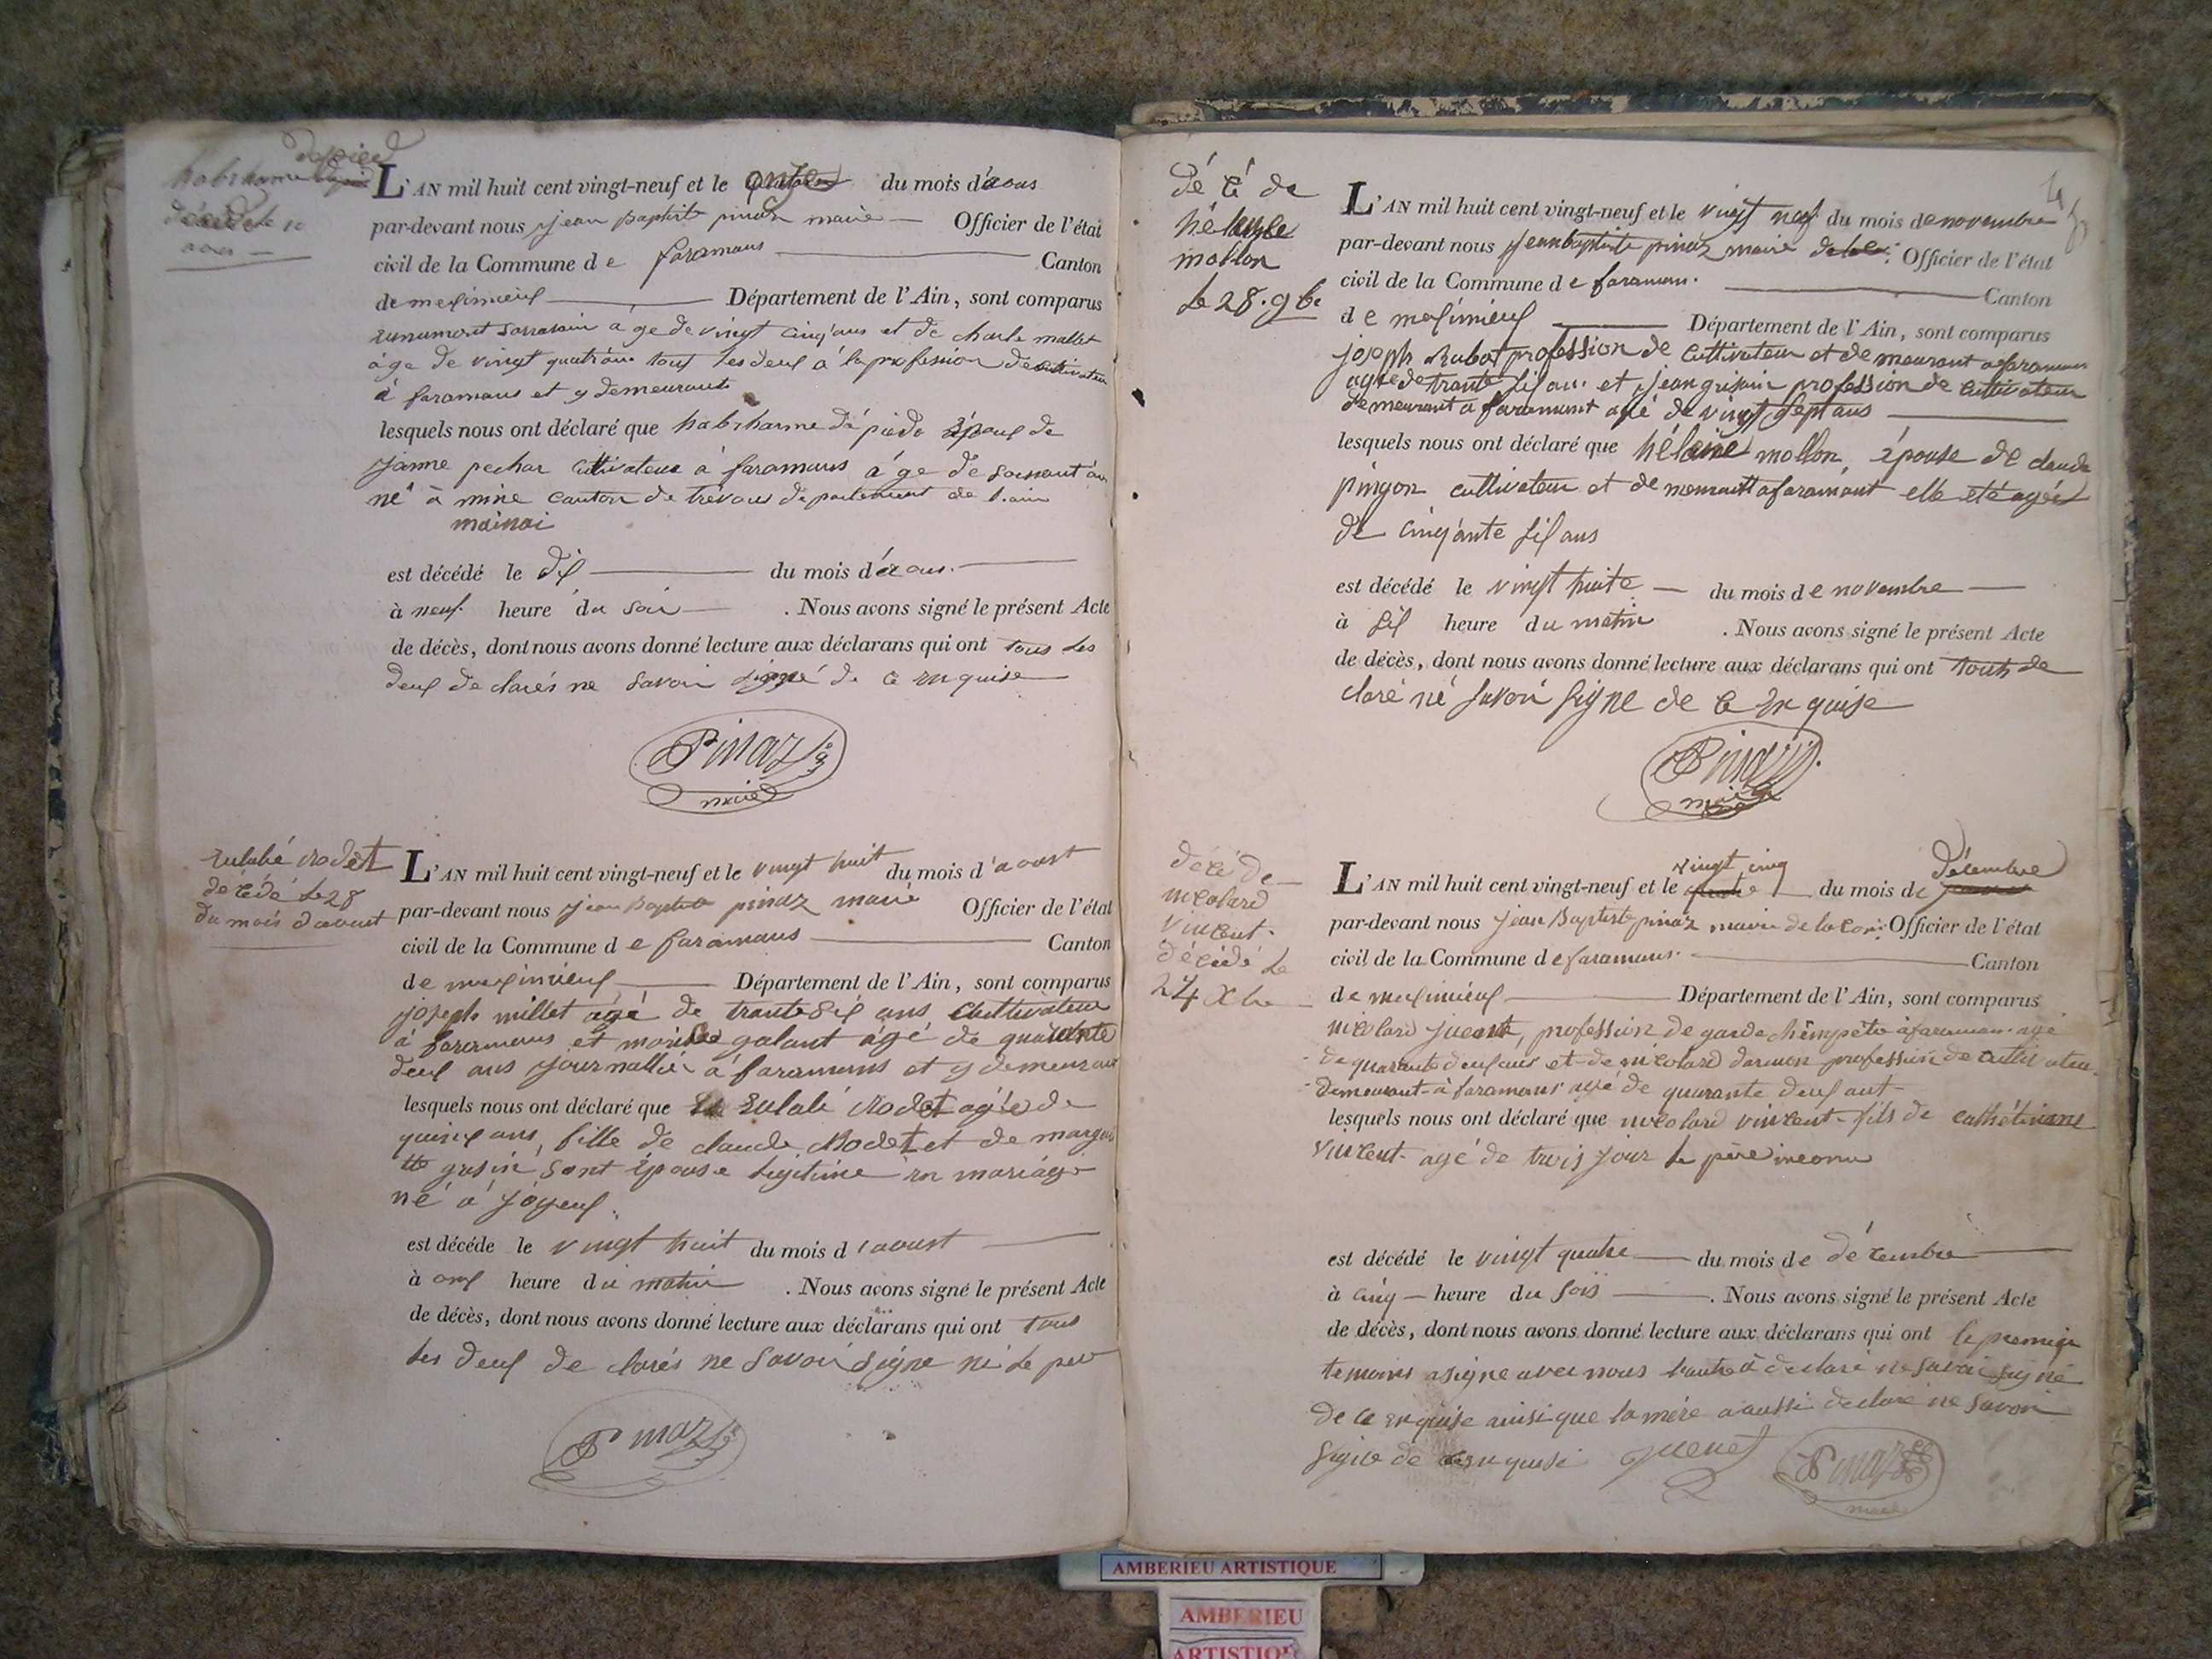 depied
habrhame
décédé le 10
aous
L'AN mil huit cent vingt-neuf et le onze du mois d'aous
par-devant nous jean Baptiste pinaz maire Officier de l'état
civil de la Commune de faramans Canton
de meximieux Département de l'Ain, sont comparus
sarrasin age de vingt cinq ans et de charle mallet
âge de vingt quatre ans tous les deux a la profession de cultivateur
à faramans et y demeurants
lesquels nous ont déclaré que habrhame dé pieds époux de
janne pechar cultivateur à faramans âge de soixant an
né à mine canton de trévoux departement de l'ain
est décédé le dix du mois d'aous
à neuf heure du soir . Nous avons signé le présent Acte
de décès, dont nous avons donné lecture aux déclarans qui ont tous les
deux declarés ne savoir signé de ce enquise
Pinaz
maire
Eulalié Rodet
décédé le 28
du mois d'aoust
L'AN mil huit cent vingt-neuf et le vingt huit du mois d'aoust
par-devant nous jean Baptiste pinaz maire Officier de l'état
civil de la Commune de faramans Canton
de meximieux Département de l'Ain, sont comparus
joseph millet agé de trante six ans cultivateur
à faramans et galant âgé de quarante
deux ans journallié à faramans et y demeurant
lesquels nous ont déclaré que Eulali Rodet agée de
quinze ans, fille de claude Rodet et de margu
tte gusin, sont épouse legitime en mariage
né à joyeux.
est décédé le vingt huit du mois d'aoust
à onz heure du matin . Nous avons signé le présent Acte
de décès, dont nous avons donné lecture aux déclarans qui ont tous
les deux de clarés ne savoir signe ni le per
Pinaz
4
décé de
hélenne
mollon
le 28. 9be
L'AN mil huit cent vingt-neuf et le vingt neuf du mois de novembre
par-devant nous jean baptiste pinaz maire Officier de l'état
civil de la Commune de faraman. Canton
de meximieux Département de l'Ain, sont comparus
joseph Rubat profession de cultivateur et demeurant a faramans
agée de trante six ans et jean grisain profession de cultivateur
demeurant a faramant agé de vingt sept ans
lesquels nous ont déclaré que hélaine mollon, épouse de claude
pingon cultivateur et demeurant a faramant elle été agée
de cinquante six ans
est décédé le vingt huite du mois de novembre
à six heure du matin . Nous avons signé le présent Acte
de décès, dont nous avons donné lecture aux déclarans qui ont touts de
claré né savoir signe de ce en quise
Pinaz
maire
décé de
nicolard
vincent.
décédé le
24 Xbre
L'AN mil huit cent vingt-neuf et le vingt cinq du mois de décembre
par-devant nous jean Baptiste pinaz maire de la com: Officier de l'état
civil de la Commune de faramans. Canton
de meximieux Département de l'Ain, sont comparus
nicolard juenet, profession de garde à faraman agé
de quarante deux ans et de nicolard darmon profession de cultivateur
demeurant à faramans agé de quarante deux ant
lesquels nous ont déclaré que nicolard vincent fils de
vincent agé de trois jour le père inconu
est décédé le vingt quatre du mois de décembre
à cinq heure du soir . Nous avons signé le présent Acte
de décès, dont nous avons donné lecture aux déclarans qui ont le premier
temoins a signe avec nous l'autre à declaré ne savoir signé
de ce enquise ainsi que la mére a aussi declaré ne savoir
signe de ce enquise juenet Pinaz
maire
AMBERIEU ARTISTIQUE
AMBERIEU
ARTISTIQUE